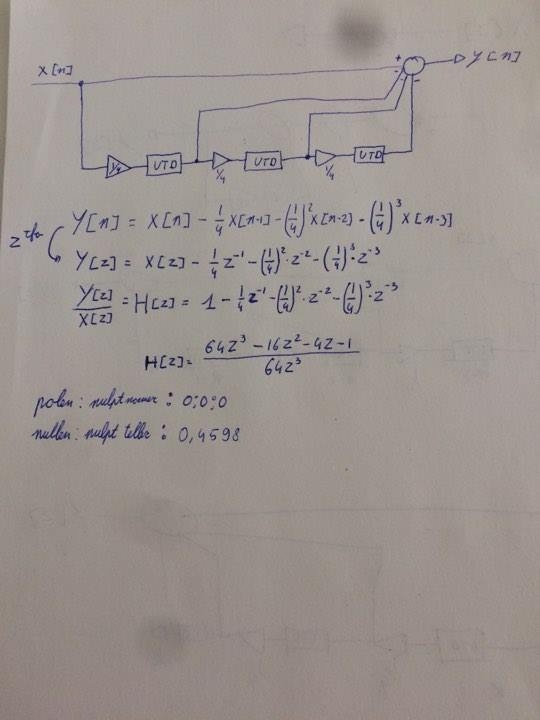 X[n]
+
-
-
-
Y[n]
1/4 UTD 1/4 UTD 1/4 UTD
Y[n] = X[n] - 1/4 X[n-1] - (1/4)² X[n-2] - (1/4)³ X[n-3]
z tfo
Y[z] = X[z] - 1/4 z⁻¹ - (1/4)² · z⁻² - (1/4)³ · z⁻³
Y[z]/X[z] = H[z] = 1 - 1/4 z⁻¹ - (1/4)² · z⁻² - (1/4)³ · z⁻³
H[z] = (64z³ - 16z² - 4z - 1) / 64z³
polen : nulpt noemer : 0;0;0
nullen : nulpt teller : 0,4598